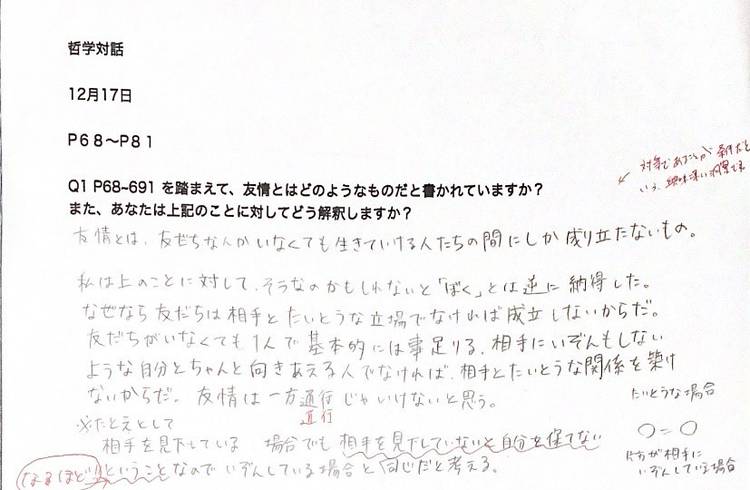 哲学対話
12月17日
P68〜P81
Q1 P68~691 を踏まえて、友情とはどのようなものだと書かれていますか？
また、あなたは上記のことに対してどう解釈しますか？
対等であることが条件だと
いう、興味深い
友情とは、友だちなんかいなくても生きていける人たちの間にしか成り立たないもの。
私は上のことに対して、そうなのかもしれないと「ぼく」とは逆に納得した。
なぜなら友だちは相手とたいとうな立場でなければ成立しないからだ。
友だちがいなくても1人で基本的には事足りる、相手にいぞんもしない
ような自分とちゃんと向きあえる人でなければ、相手とたいとうな関係を築け
ないからだ。友情は一方通行じゃいけないと思う。
通行
※たとえとして
相手を見下している 場合でも相手を見下していないと自分を保てない
ということなのでいぞんしている場合と同じだと考える。
なるほど!!
たいとうな場合
○=○
片方が相手に
いぞんしている場合